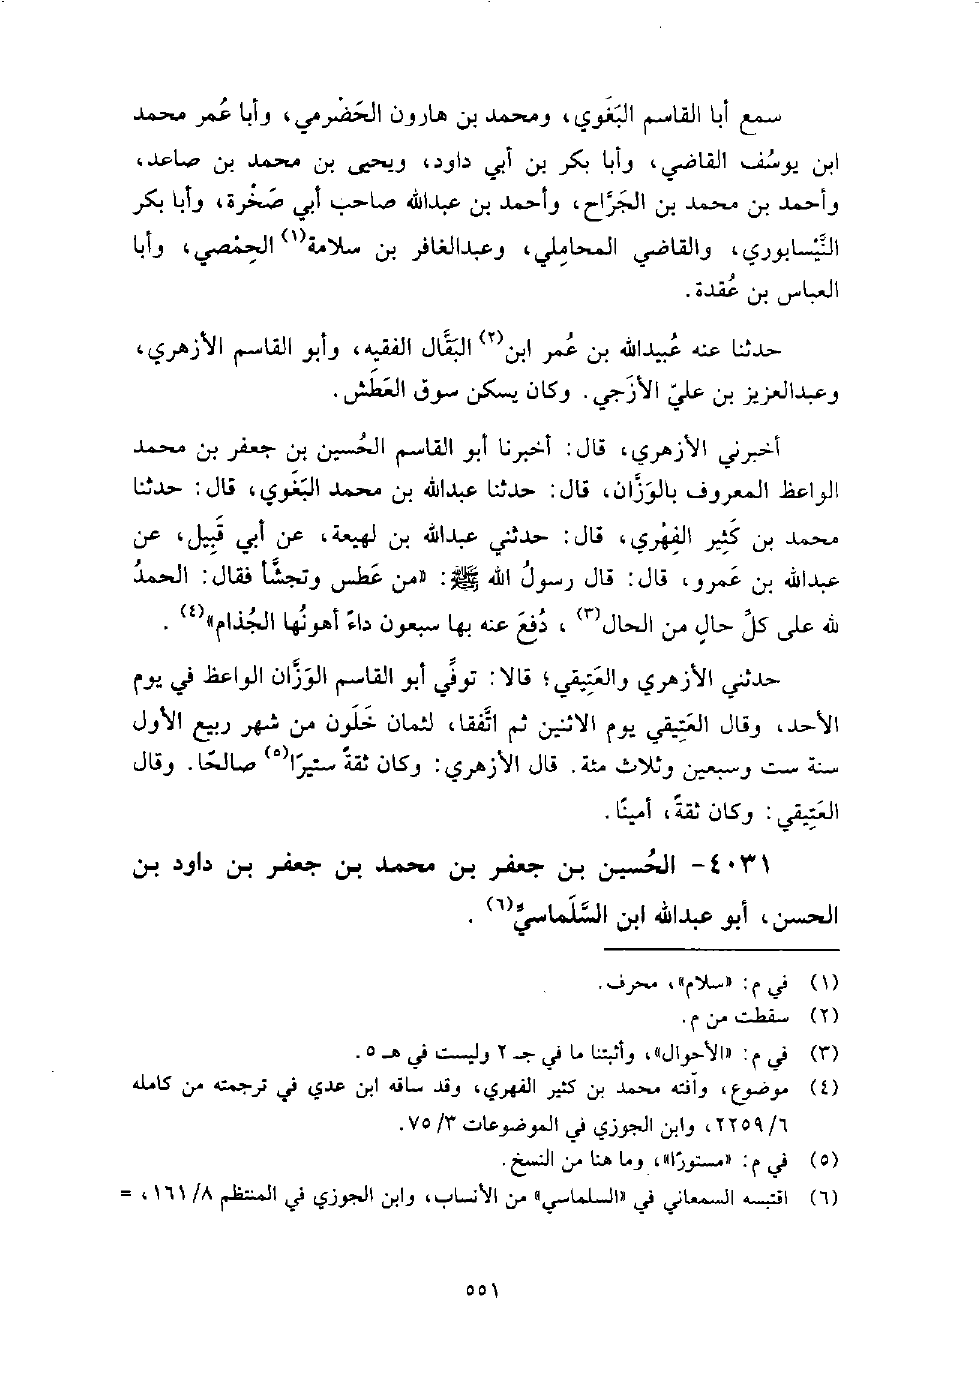 سمع أبا القاسم البَغَوي، ومحمد بن هارون الحَضْرمي، وأبا عُمر محمد
ابن يوسُف القاضي، وأبا بكر بن أبي داود، ويحيى بن محمد بن صاعد،
وأحمد بن محمد بن الجَرَّاح، وأحمد بن عبدالله صاحب أبي صَخْرة، وأبا بكر
النَّيْسابوري، والقاضي المحاملي، وعبدالغافر بن سلامة(١) الحِمْصي، وأبا
العباس بن عُقدة.
حدثنا عنه عُبيدالله بن عُمر ابن(٢) البَقَّال الفقيه، وأبو القاسم الأزهري،
وعبدالعزيز بن عليّ الأزَجي. وكان يسكن سوق العَطَش.
أخبرني الأزهري، قال: أخبرنا أبو القاسم الحُسين بن جعفر بن محمد
الواعظ المعروف بالوَزَّان، قال: حدثنا عبدالله بن محمد البَغَوي، قال: حدثنا
محمد بن كَثِير الفِهْري، قال: حدثني عبدالله بن لهيعة، عن أبي قَبِيل، عن
عبدالله بن عَمرو، قال: قال رسولُ الله ﷺ: «من عَطس وتجشَّأ فقال: الحمدُ
لله على كلِّ حالٍ من الحال(٣) ، دُفعَ عنه بها سبعون داءً أهونُها الجُذام»(٤) .
حدثني الأزهري والعَتِيقي؛ قالا: توفِّي أبو القاسم الوَزَّان الواعظ في يوم
الأحد، وقال العَتِيقي يوم الاثنين ثم اتَّفقا، لثمان خَلَون من شهر ربيع الأول
سنة ست وسبعين وثلاث مئة. قال الأزهري: وكان ثقةً ستيرًا(٥) صالحًا. وقال
العَتِيقي: وكان ثقةً، أمينًا.
٤٠٣١- الحُسين بن جعفر بن محمد بن جعفر بن داود بن
الحسن، أبو عبدالله ابن السَّلَماسيِّ(٦) .
(١) في م: «سلام»، محرف.
(٢) سقطت من م.
(٣) في م: «الأحوال»، وأثبتنا ما في جـ ٢ وليست في هـ ٥.
(٤) موضوع، وآفته محمد بن كثير الفهري، وقد ساقه ابن عدي في ترجمته من كامله
٦/ ٢٢٥٩، وابن الجوزي في الموضوعات ٣/ ٧٥.
(٥) في م: «مستورًا»، وما هنا من النسخ.
(٦) اقتبسه السمعاني في «السلماسي» من الأنساب، وابن الجوزي في المنتظم ٨/ ١٦١، =
٥٥١